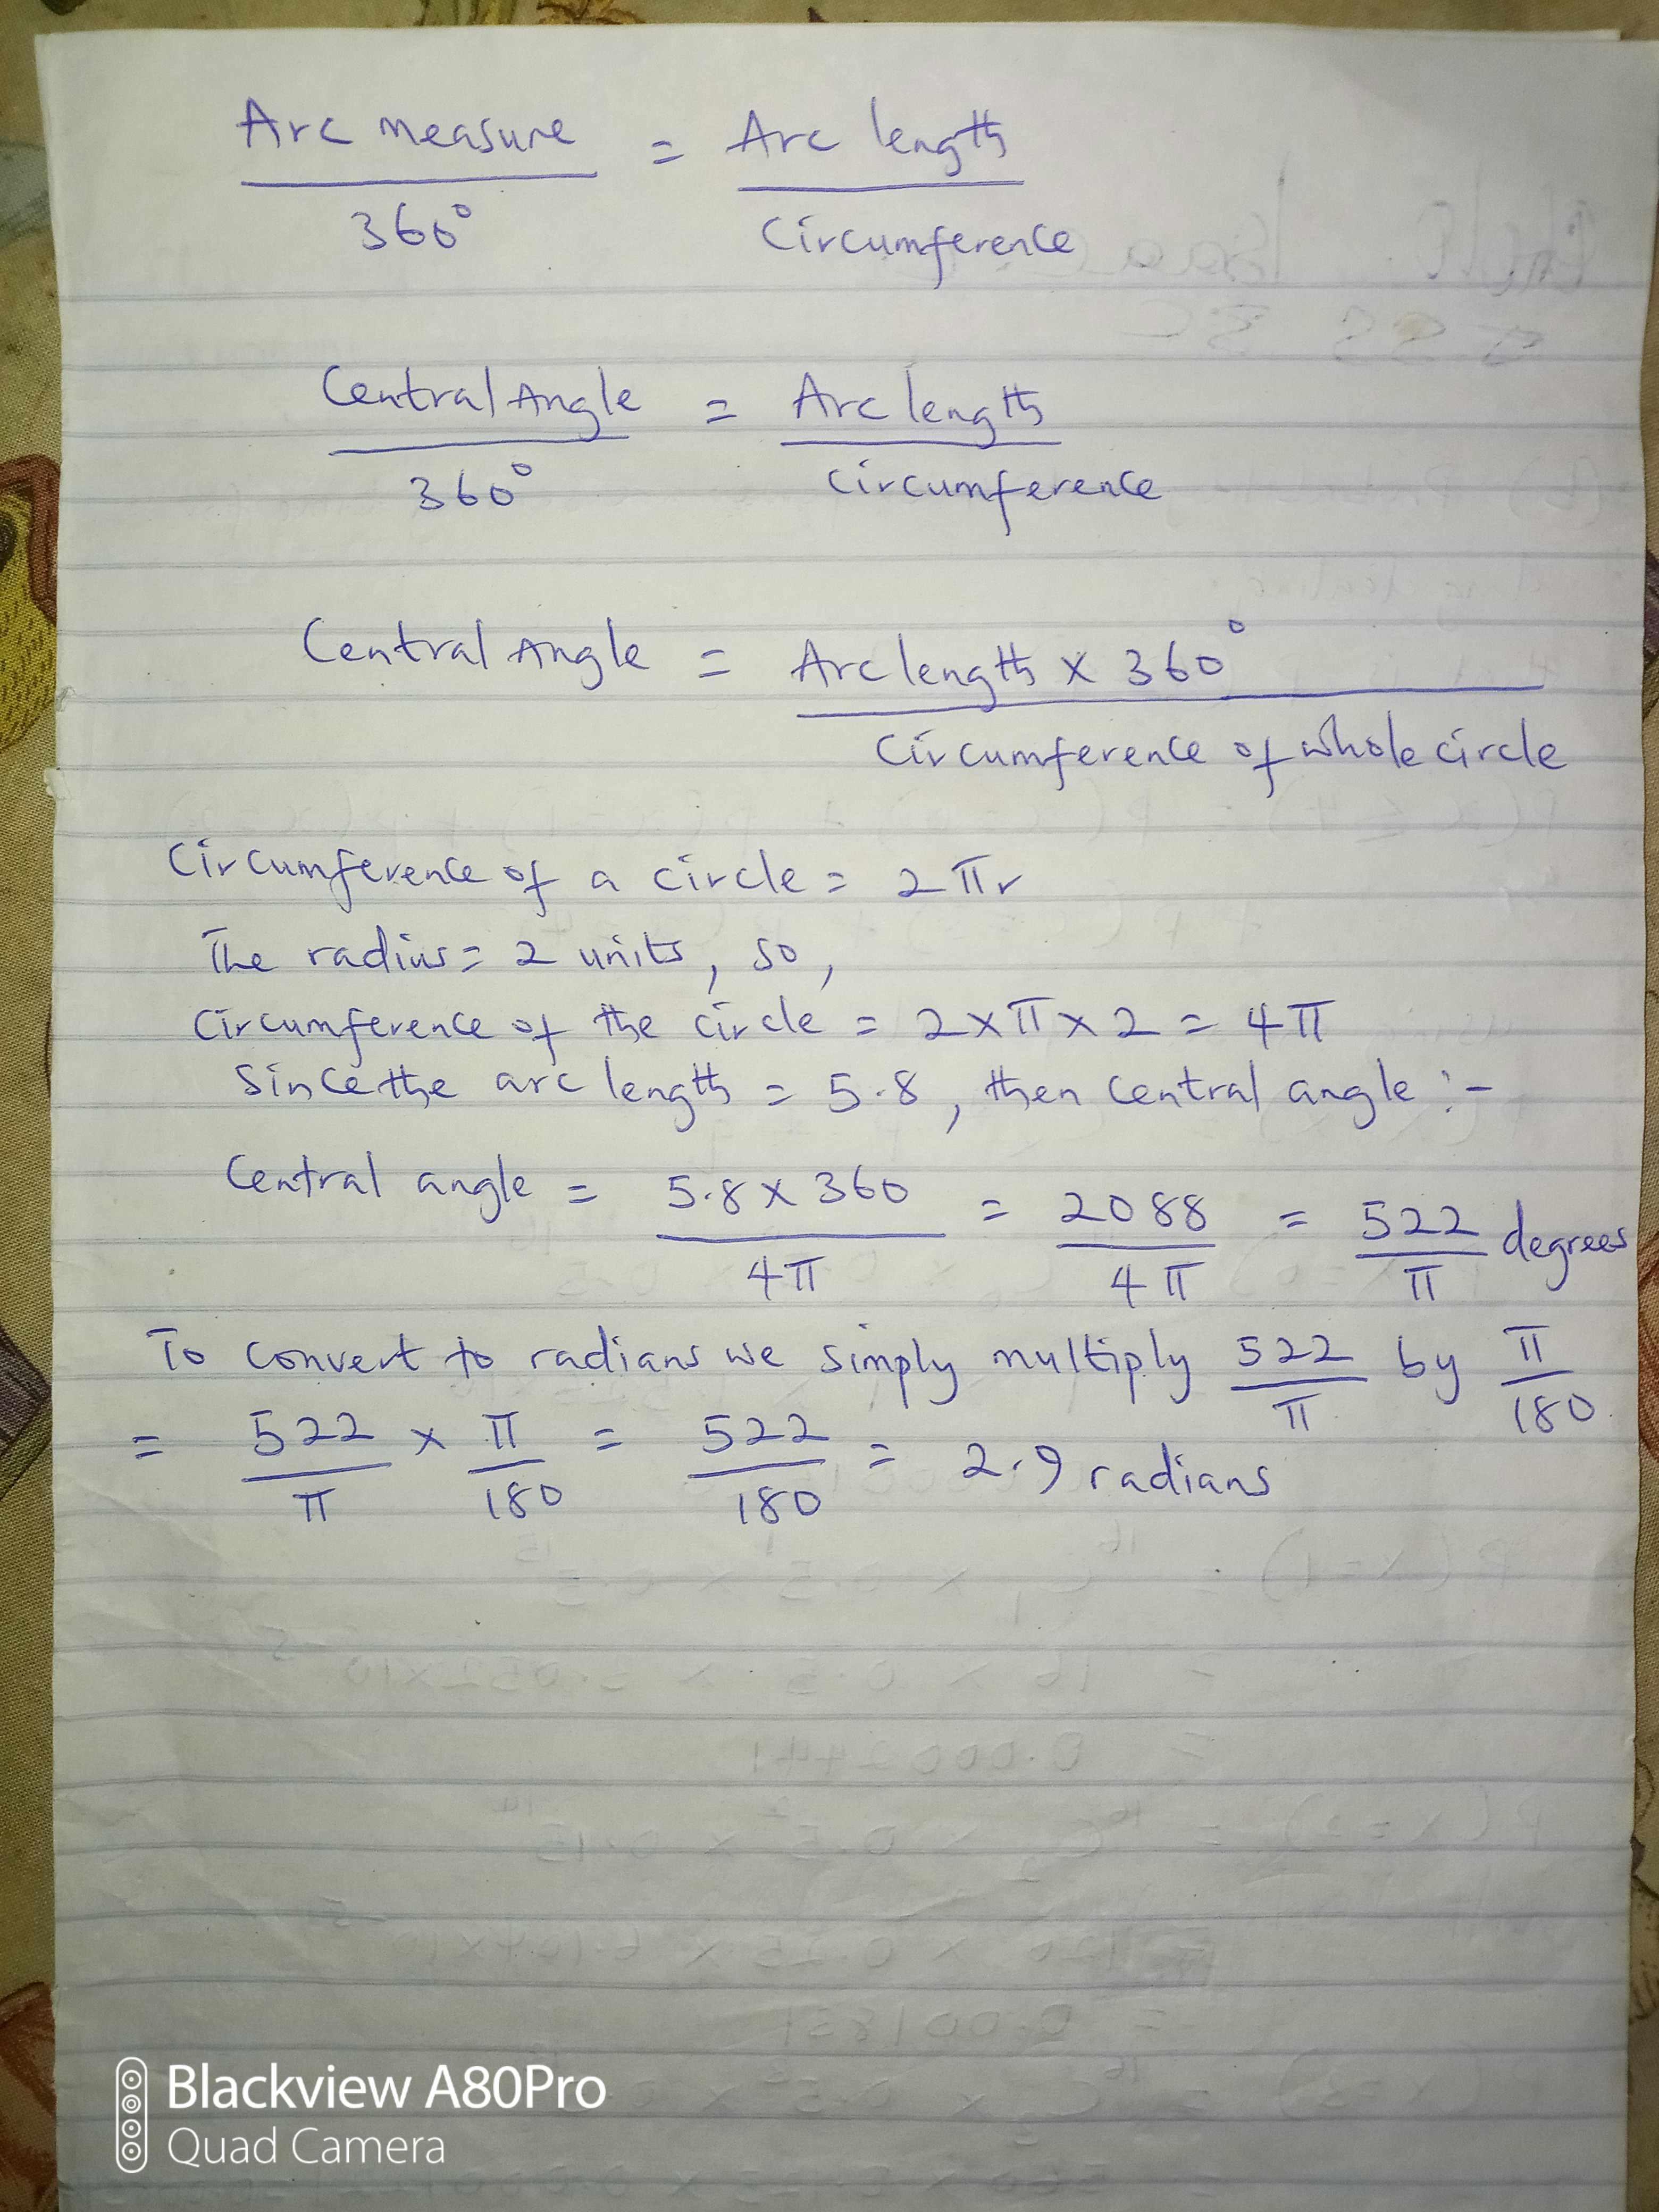 Arc measure = Arc length
360° Circumference
Central Angle = Arc length
360° Circumference
Central Angle = Arc length x 360°
Circumference of whole circle
Circumference of a circle = 2πr
The radius = 2 units, so,
Circumference of the circle = 2 x π x 2 = 4π
Since the arc length = 5.8, then central angle :-
Central angle = 5.8 x 360 = 2088 = 522 degrees
4π 4π π
To convert to radians we simply multiply 522 by π
π 180
= 522 x π = 522 = 2.9 radians
π 180 180
Blackview A80Pro
Quad Camera